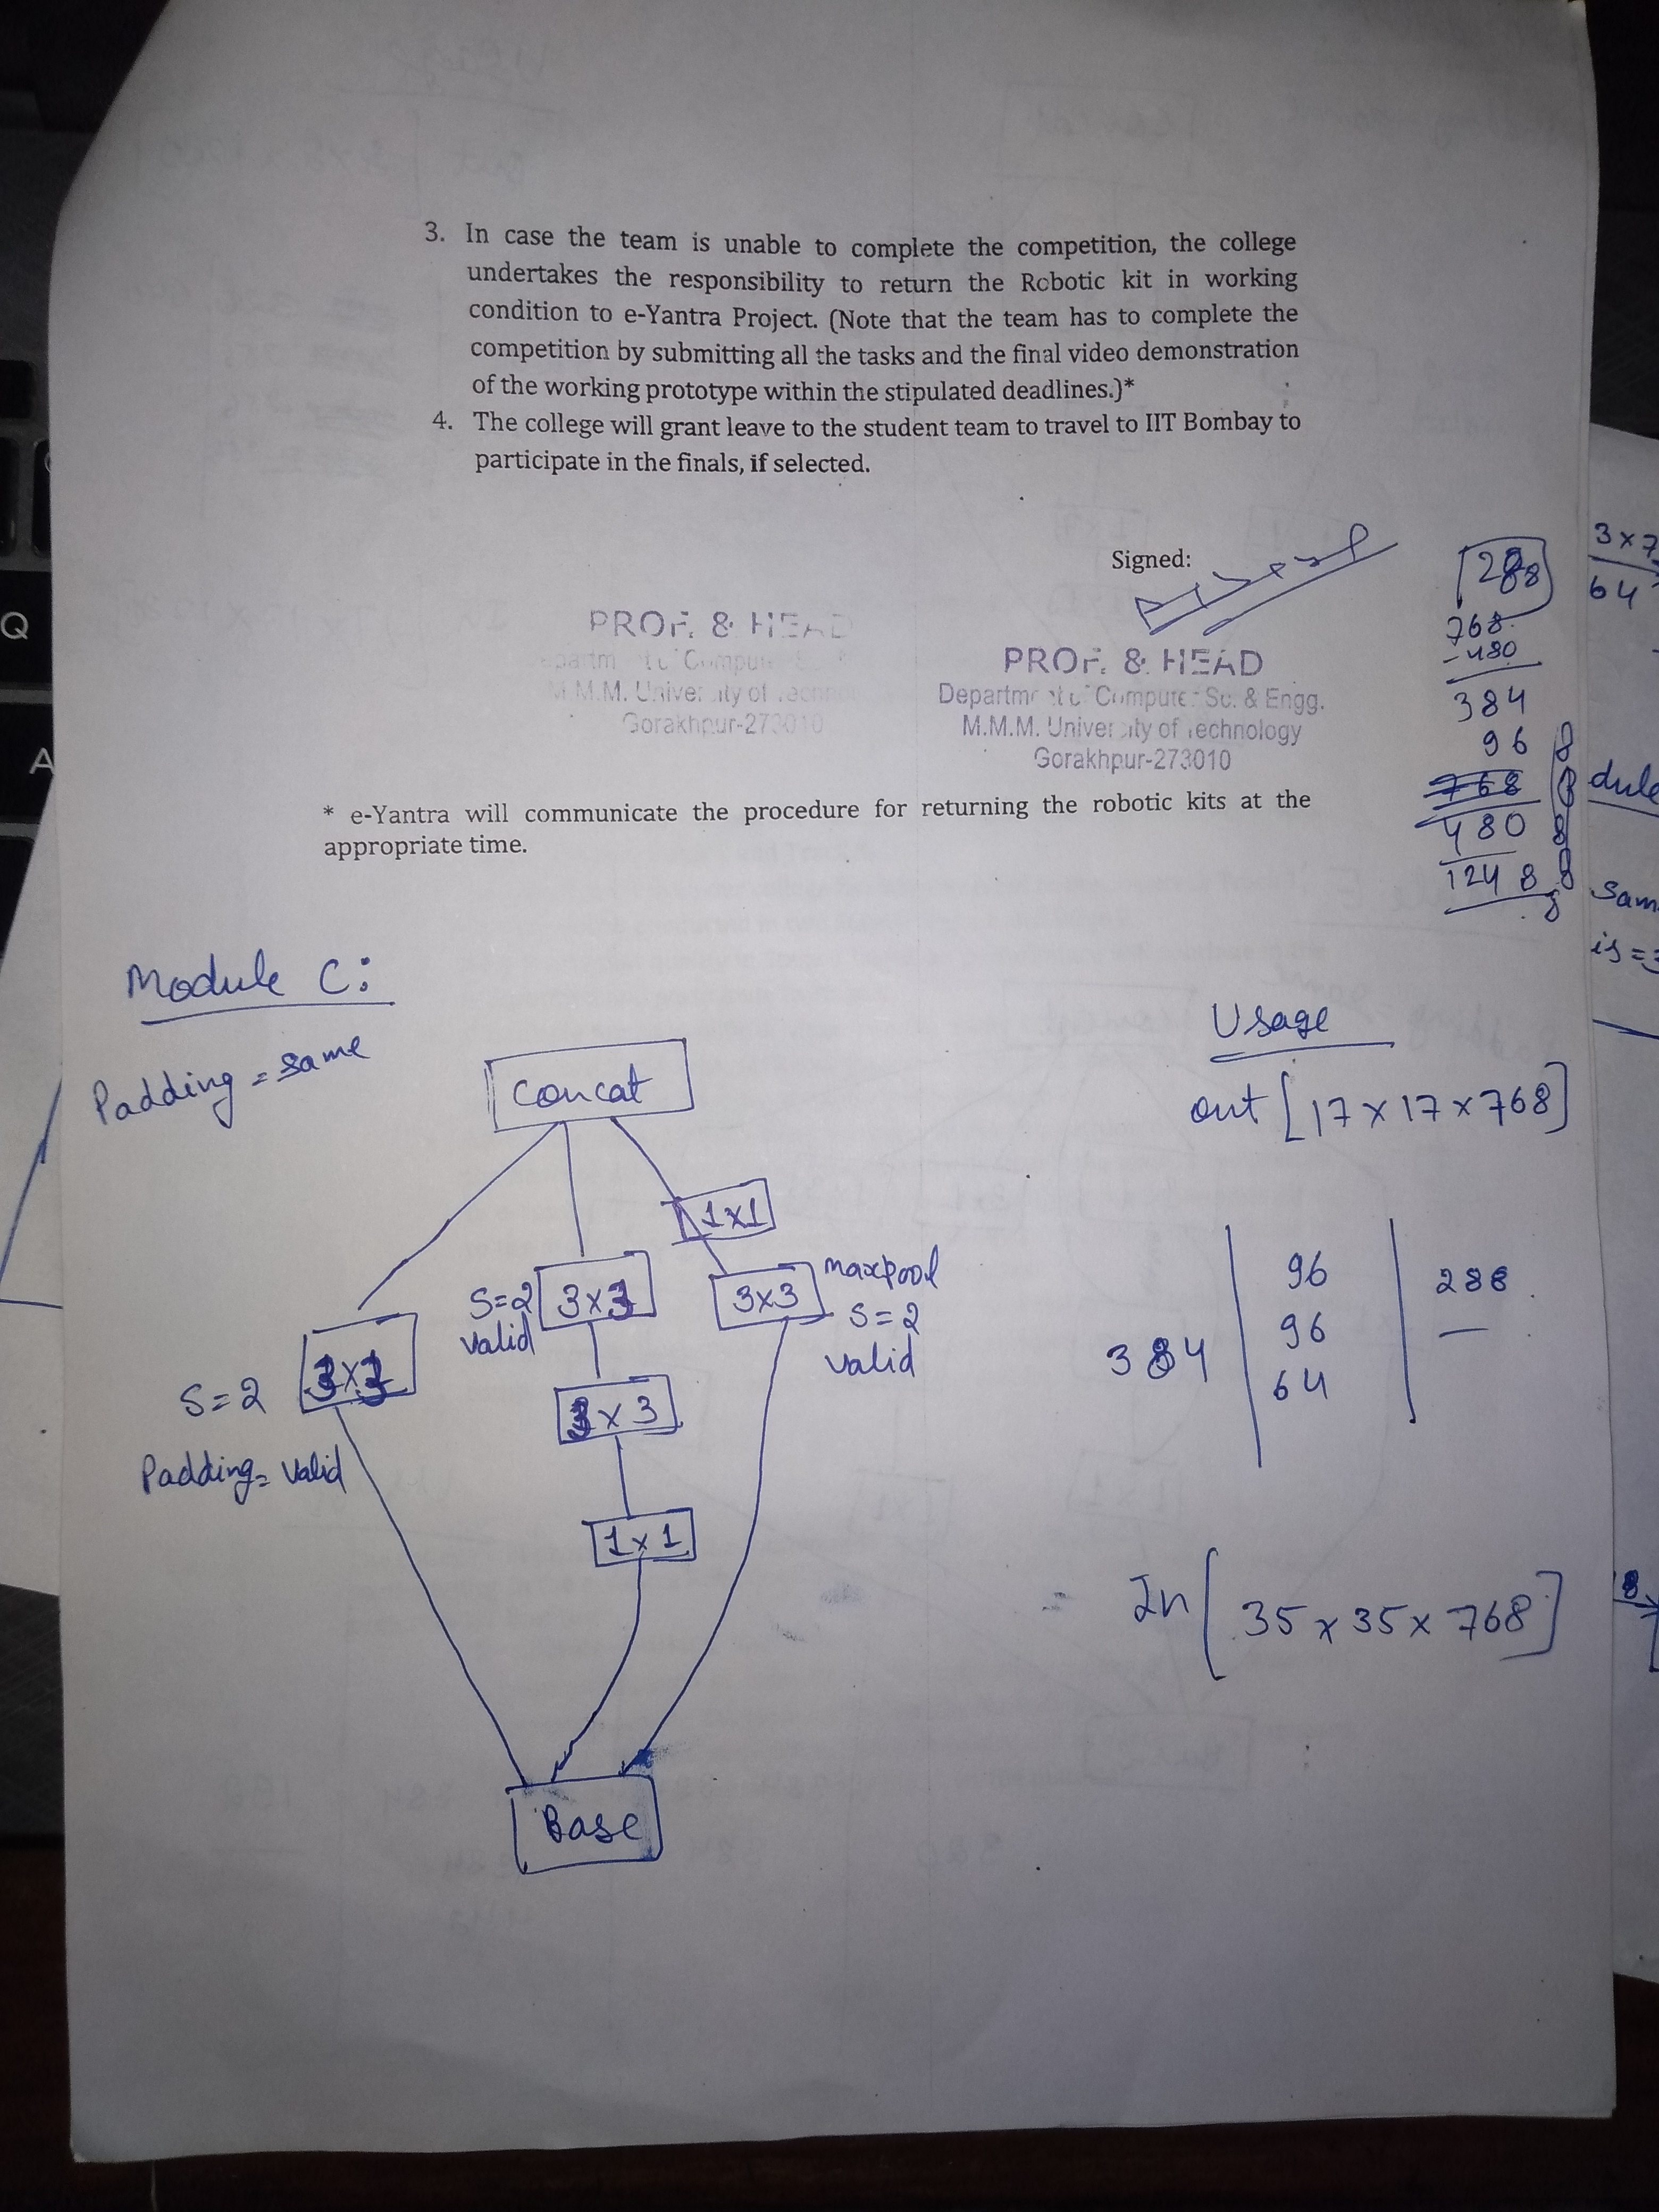 3. In case the team is unable to complete the competition, the college
undertakes the responsibility to return the Robotic kit in working
condition to e-Yantra Project. (Note that the team has to complete the
competition by submitting all the tasks and the final video demonstration
of the working prototype within the stipulated deadlines.)*
4. The college will grant leave to the student team to travel to IIT Bombay to
participate in the finals, if selected.
Signed:
PROF. & HEAD
M.M.M. University of
Gorakhpur-273010
PROF. & HEAD
Department of Computer Sc. & Engg.
M.M.M. University of Technology
Gorakhpur-273010
* e-Yantra will communicate the procedure for returning the robotic kits at the
appropriate time.
288
768
-480
384
96
768
480
1248
3x7
64
dule
Sam
is=3
Module C:
Padding = same
Concat
1x1
S=2
valid
3x3
3x3
maxpool
S=2
valid
3x3
S=2
Padding = valid
3x3
1x1
Base
Usage
out [17 x 17 x 768]
384
96
96
64
288
In [35 x 35 x 768]
Q
A